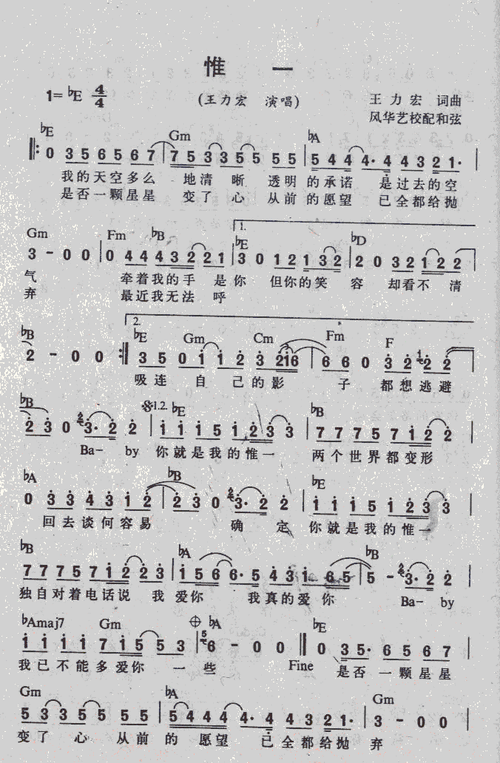 惟 一
1=♭E 4/4
(王力宏 演唱)
王 力 宏 词曲
风华艺校配和弦
♭E Gm ♭A
0 3 5 6 5 6 7 7 5 3 5 5 5 5 4 4 4· 4 4 3 2 1·
我的天空多么 地清 晰 透明的承诺 是过去的空
是否一颗星星 变了 心 从前的愿望 已全都给抛
Gm Fm ♭B 1. ♭E ♭D
3 - 0 0 0 4 4 3 2 2 1 3 0 1 2 1 3 2 0 3 2 1 2 2
气 牵着我的手 是你 但你的笑 容 却看不 清
弃 最近我无法 呼
♭B 2. ♭E Gm Cm Fm F
2 - 0 0 3 5 0 1 1 2 3 2 3 2 1 6 6 6 0 3 2 2 1 2 2
吸连 自 己的影 子 都想逃避
♭B 𝄋1.2. ♭E ♭B
2 3 0 3· 2 2 1 1 1 5 1 2 3 3 7 7 7 5 7 1 2 2
Ba- by 你就是我的惟一 两个世界都变形
♭A ♭B ♭E
0 3 3 4 3 1 2 2 3 0 3 2 1 1 1 5 1 2 3 3
回去谈何容易 确 定 你就是我的惟一
♭B ♭A ♭B
7 7 7 5 7 1 2 2 1 5 6 6 5 4 3 1 6 5 5 - 3· 2 2
独自对着电话说 我 爱你 我真的爱你 Ba- by
♭Amaj7 Gm 𝄌 ♭A ♭E
1 1 1 1 7 1 5 5 6 - 0 0 0 3 5· 5 6 5 6 7
我已不能多爱你 一些 Fine 是否一颗星星
Gm ♭A Gm
7 5 3 5 5 5 5 5 4 4 4 4· 4 4 3 2 1· 3 - 0 0
变了 心 从前 的 愿望 已全都给抛 弃